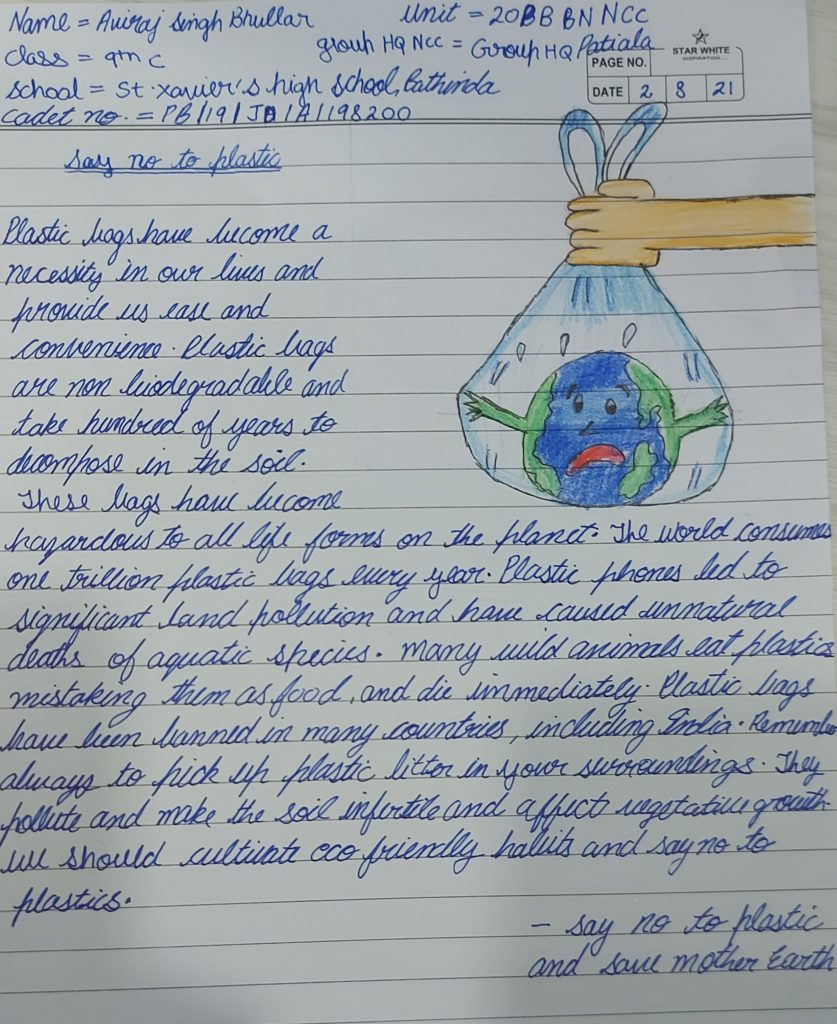 Name = Aviraj Singh Bhullar
Unit = 20BB BN NCC
Class = 9th C
group HQ NCC = Group HQ Patiala
School = St. Xavier's high school, Bathinda
Cadet no. = PB/19/JD/A/198200
STAR WHITE
INSPIRATION...
PAGE NO.
DATE 2 8 21
Say no to plastic
Plastic bags have become a
necessity in our lives and
provide us ease and
convenience. Plastic bags
are non biodegradable and
take hundred of years to
decompose in the soil.
These bags have become
hazardous to all life forms on the planet. The world consumes
one trillion plastic bags every year. Plastic phones led to
significant land pollution and have caused unnatural
deaths of aquatic species. Many wild animals eat plastics
mistaking them as food, and die immediately. Plastic bags
have been banned in many countries, including India. Remember
always to pick up plastic litter in your surroundings. They
pollute and make the soil infertile and affect vegetative growth
we should cultivate eco friendly habits and say no to
plastics.
- say no to plastic
and save mother Earth